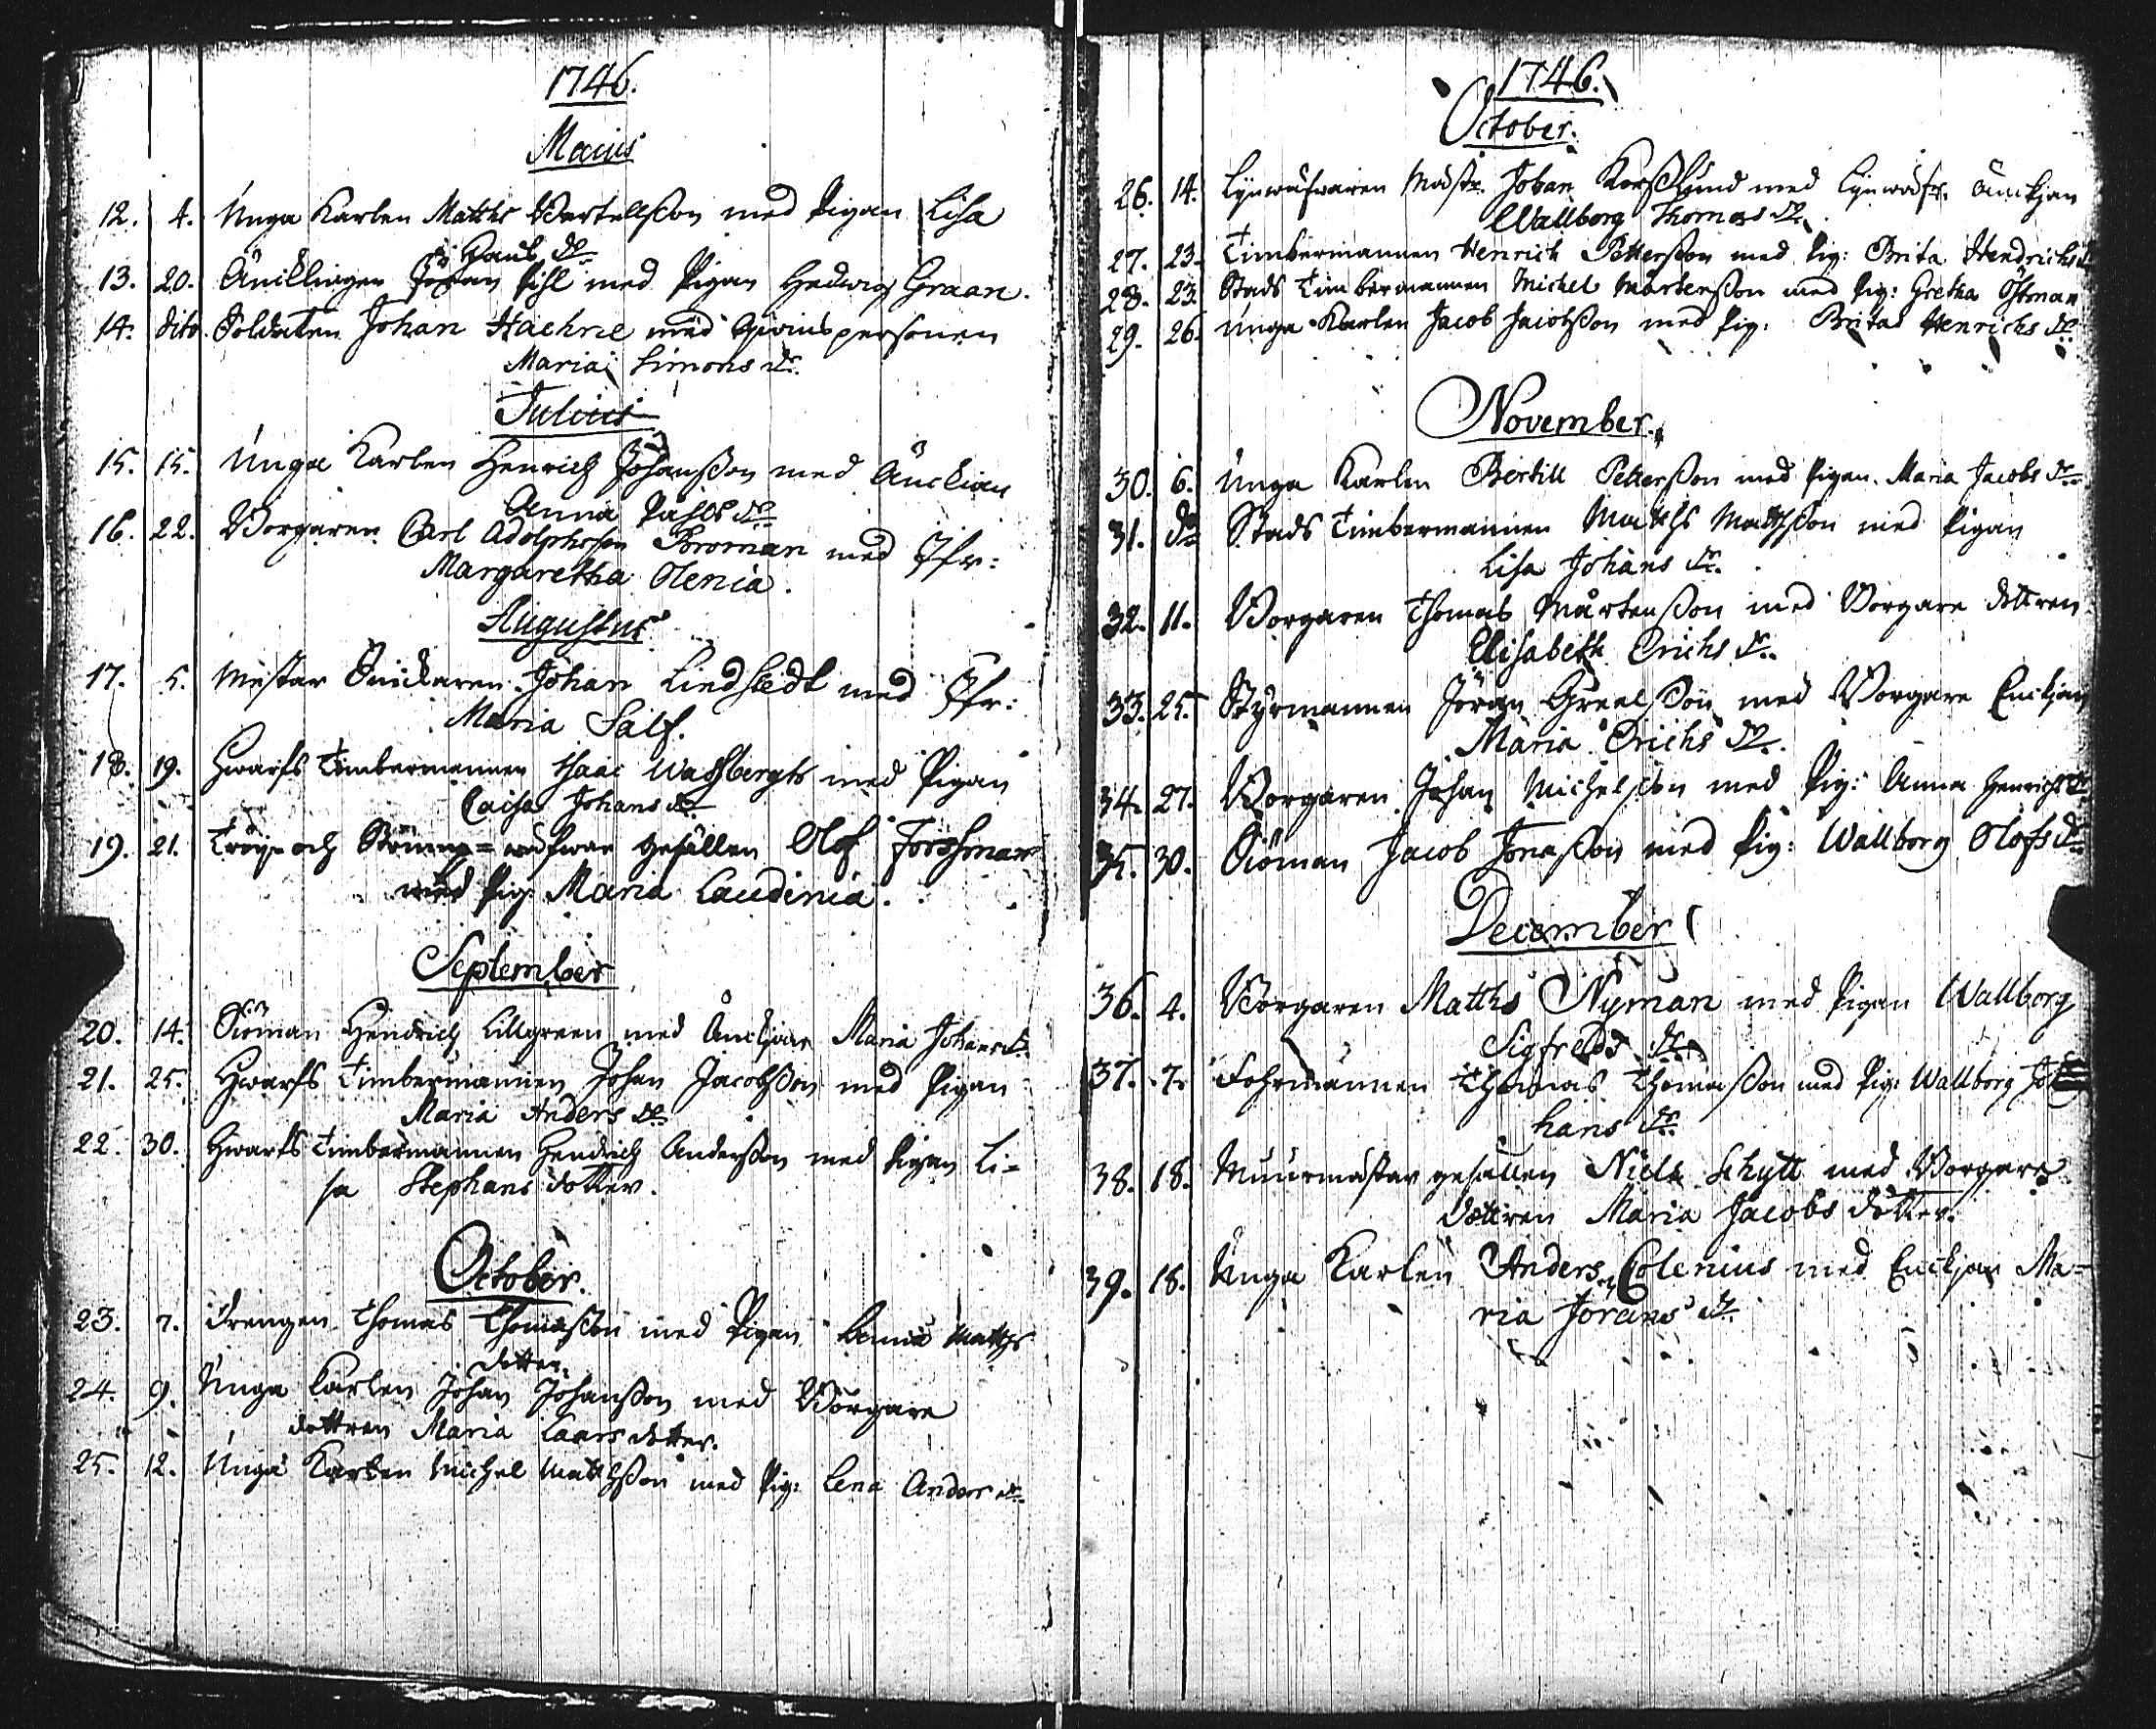 1746.
Maius
12. 4. Unga Karlen Matths Bertellsson med Pigan Lisa
Pauls dr
13. 20. Äncklingen Johan Pihl med Pigan Hedwig Graan.
14. dito. Soldaten Johan Haehrie med Qwinspersonen
Maria Simons dr.
Julius
15. 15. Unga Karlen Henrich Johansson med Änckian
Anna Påhls dr
16. 22. Borgaren Carl Adolphsson Broman med Jfr:
Margaretha Olenia.
Augustus
17. 5. Mestar Snickaren Johan Lindstedt med Jfr:
Maria Salf.
18. 19. Hwarfs Timbermannen Isaac Wassbergh med Pigan
Caisa Johans dr
19. 21. Tröye och Strumpe=wäfware gesällen Olof Forssman
med Pig: Maria Laudinia.
September
20. 14. Siöman Hendrich Lillgreen med Änckjan Maria Johans dr.
21. 25. Hwarfs Timbermannen Johan Jacobsson med Pigan
Maria Anders dr
22. 30. Hwarfs Timbermannen Hendrich Andersson med Pigan Li=
sa Stephans dotter.
October.
23. 7. Drengen Thomas Thomasson med Pigan Matths
dotter.
24. 9. Unga Karlen Johan Johansson med Borgare
dottren Maria Lars dotter.
25. 12. Unga Karlen Michel Matthsson med Pig: Lena Anders dr.
1746.
October.
26. 14. Lynwäfwaren Mäst. Johan Korsslund med Lynwäfr. Änckjan
Wallborg Thomas dr.
27. 23. Timbermannen Henrich Pettersson med Pig: Brita Hendrichs dr
28. 23. Stads Timbermannen Michel Mårtensson med Pig: Gretha Östman
29. 26. Unga Karlen Jacob Jacobsson med Pig: Brita Henrichs dr
November.
30. 6. Unga Karlen Bertill Pettersson med Pigan Maria Jacobs dr
31. do Stads Timbermannen Matths Matthsson med Pigan
Lisa Johans dr.
32. 11. Borgaren Thomas Mårtensson med Borgare dottren
Elisabeth Erichs dr.
33. 25. Styrmannen Jöran Greelsson med Borgare Enckjan
Maria Erichs dr.
34. 27. Borgaren Johan Michelsson med Pig: Anna Henrichs dr
35. 30. Siöman Jacob Jonasson med Pig: Wallborg Olofs dr
December
36. 4. Borgaren Matths Nyman med Pigan Wallborg
Sigfreds dr
37. 7. Fohrmannen Thomas Thomasson med Pig: Wallborg Jo
hans dr
38. 18. Muurmästar gesällen Niels Schytt med Borgare
dottren Maria Jacobs dotter.
39. 18. Unga Karlen Anders Colenius med Enckjan Ma=
ria Jörans dr